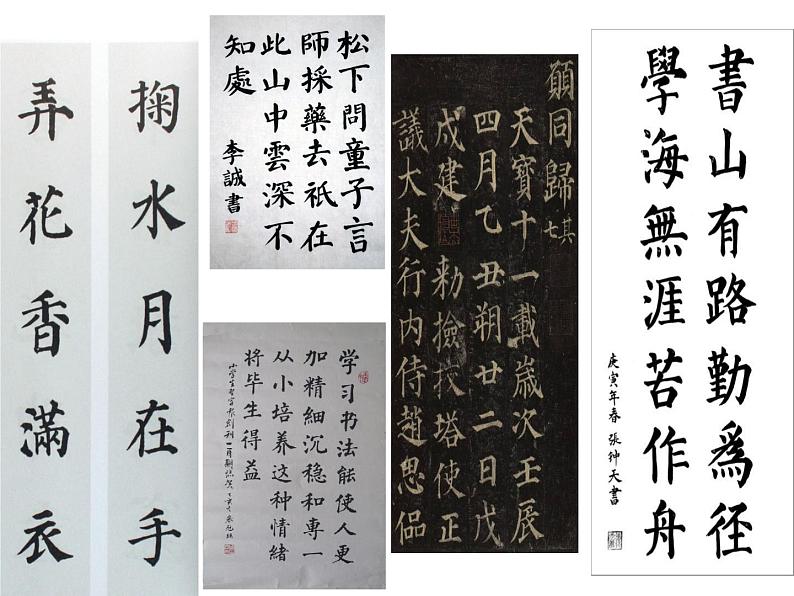 掬水月在手
弄花香滿衣
松下問童子言
師採藥去祇在
此山中雲深不
知處
李誠書
学习书法能使人更
加精细沉稳和專一
从小培养这种情绪
将毕生得益
願同歸其七
天寶十一載歲次壬辰
四月乙丑朔廿二日戊
戌建勑撿挍塔使正
議大夫行内侍趙思偘
書山有路勤為徑
學海無涯苦作舟
庚寅年春張钟天書